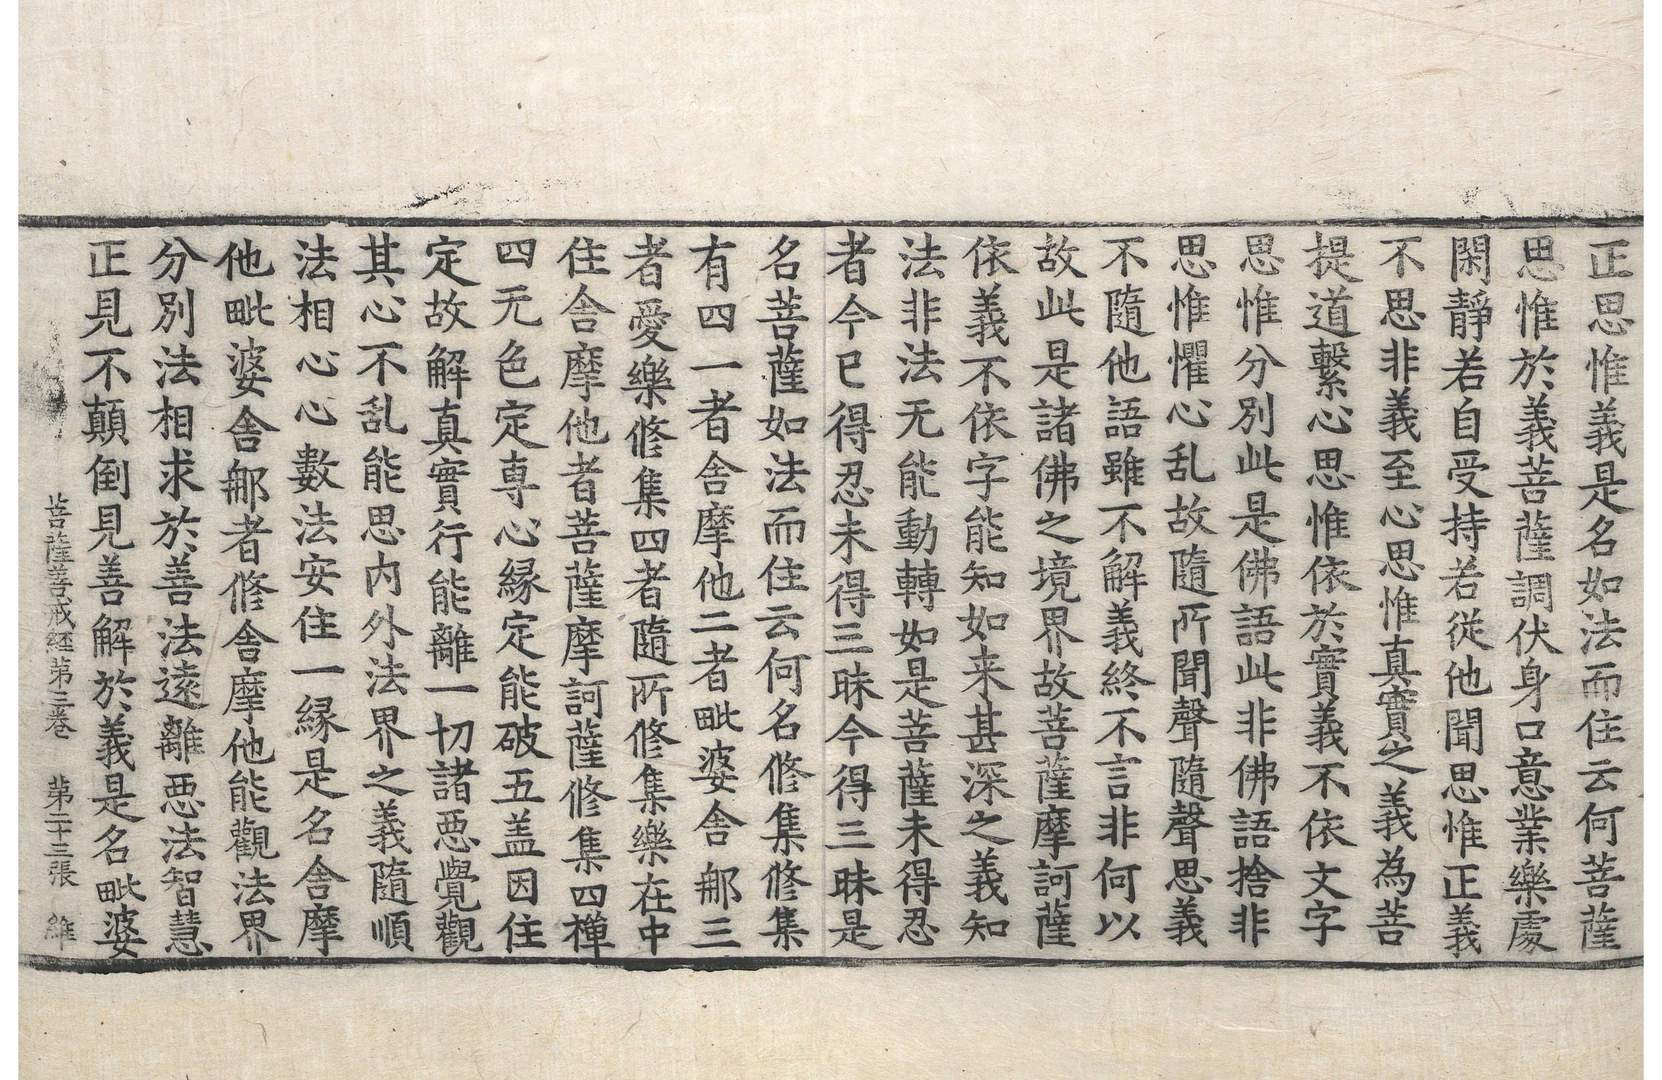 正思惟義是名如法而住云何菩薩
思惟於義菩薩調伏身口意業樂處
閑靜若自受持若從他聞思惟正義
不思非義至心思惟真實之義為菩
提道繫心思惟依於實義不依文字
思惟分別此是佛語此非佛語捨非
思惟懼心乱故隨所聞聲隨聲思義
不隨他語雖不解義終不言非何以
故此是諸佛之境界故菩薩摩訶薩
依義不依字能知如来甚深之義知
法非法无能動轉如是菩薩未得忍
者今已得忍未得三昧今得三昧是
名菩薩如法而住云何名修集修集
有四一者舍摩他二者毗婆舍那三
者愛樂修集四者隨所修集樂在中
住舍摩他者菩薩摩訶薩修集四禅
四无色定専心縁定能破五盖因住
定故解真實行能離一切諸悪覺觀
其心不乱能思内外法界之義隨順
法相心心數法安住一縁是名舍摩
他毗婆舍那者修舍摩他能觀法界
分別法相求於善法遠離悪法智慧
正見不顛倒見善解於義是名毗婆
菩薩善戒経第三巻 第二十三張 維